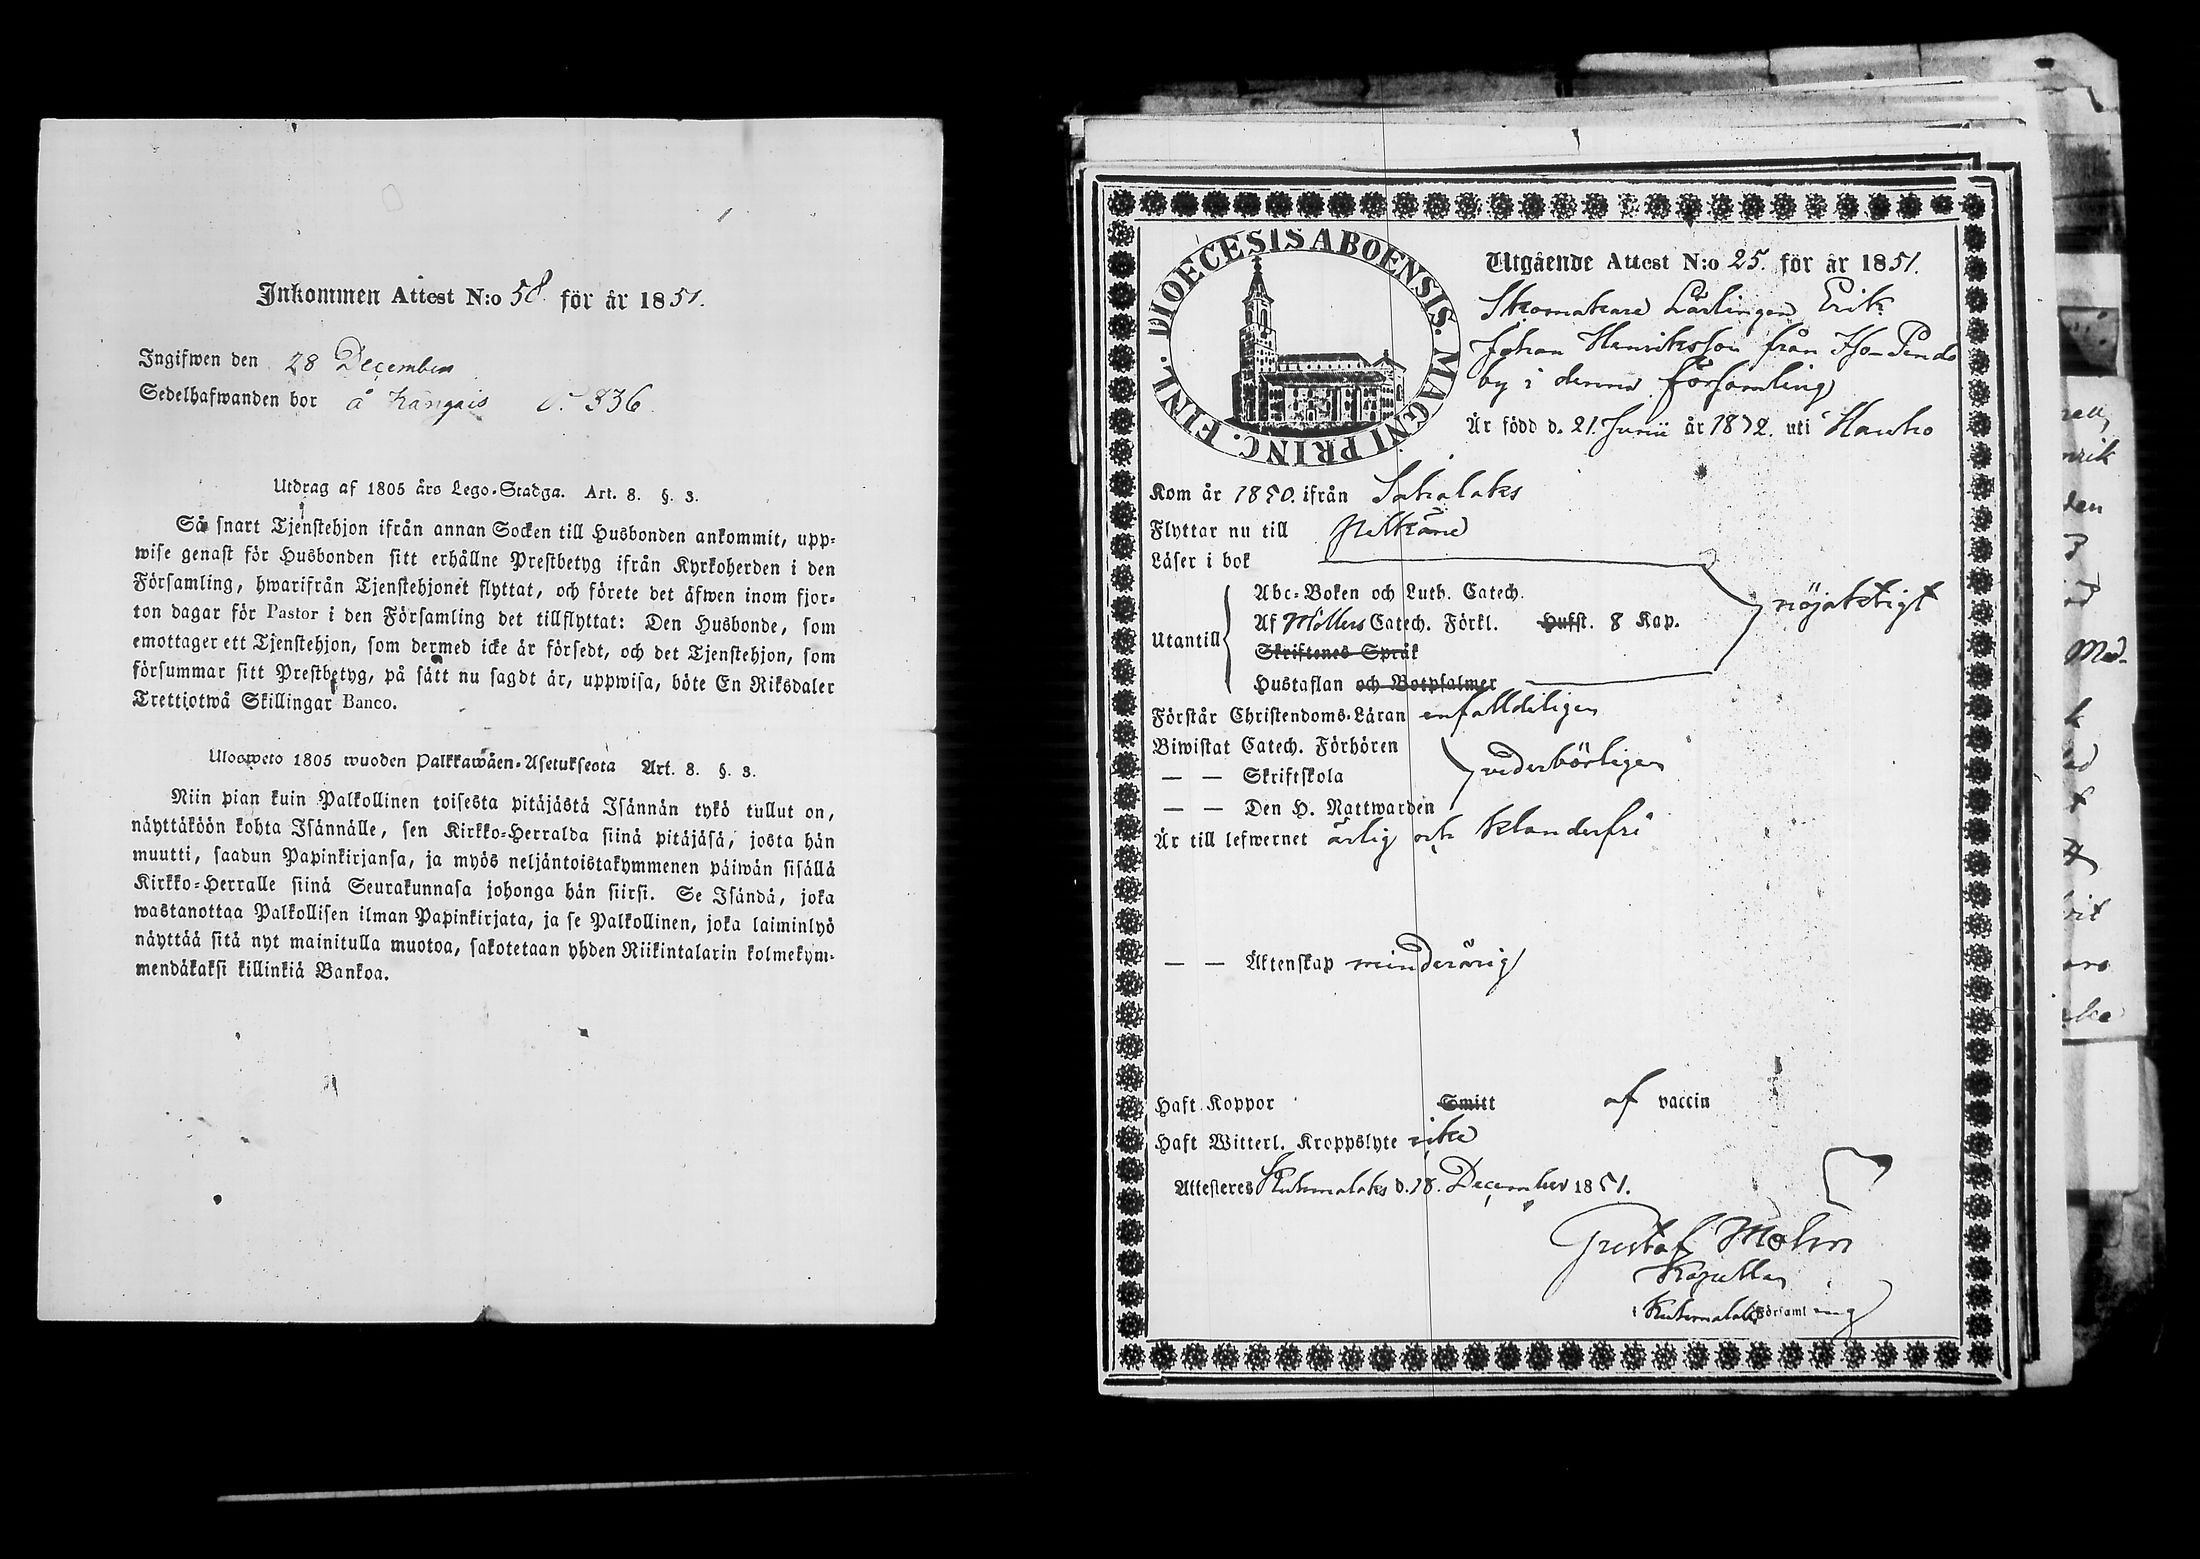 Inkommen Attest N:o 58. för år 1851.
Ingifwen den 28 December
Sedelhafwanden bor å Kangais 336.
Utdrag af 1805 års Lego-Stadga. Art. 8. §. 3.
Så snart Tjenstehjon ifrån annan Socken till Husbonden ankommit, upp-
wise genast för Husbonden sitt erhållne Prestbetyg ifrån Kyrkoherden i den
Församling, hwarifrån Tjenstehjonet flyttat, och förete det äfwen inom fjor-
ton dagar för Pastor i den Församling det tillflyttat: Den Husbonde, som
emottager ett Tjenstehjon, som dermed icke är försedt, och det Tjenstehjon, som
försummar sitt Prestbetyg, på sätt nu sagdt är, uppwisa, böte En Riksdaler
Trettiotwå Skillingar Banco.
Uloosweto 1805 wuoden Palkkawäen-Asetuksesta Art. 8. §. 3.
Niin pian kuin Palkollinen toisesta pitäjästä Isännän tykö tullut on,
näyttäköön kohta Isännälle, sen Kirkko-Herralda siinä pitäjäsä, josta hän
muutti, saadun Papinkirjansa, ja myös neljäntoistakymmenen päiwän sisällä
Kirkko-Herralle siinä Seurakunnasa johonga hän siirsi. Se Isändä, joka
wastanottaa Palkollisen ilman Papinkirjata, ja se Palkollinen, joka laiminlyö
näyttää sitä nyt mainitulla muotoa, sakotetaan yhden Riikintalarin kolmekym-
mendäkaksi killinkiä Bankoa.
DIOECESIS ABOENSIS. MAGNI PRINC. FINL.
Utgående Attest N:o 25. för år 1851.
Skomakare Lärlingen Erik
Johan Henriksson från
by i denna församling
Är född d. 21. Junii år 1832. uti Hauho
Kom år 1850. ifrån Sahalaks
Flyttar nu till Pelkäne
Läser i bok
Utantill
Abc-Boken och Luth. Catech.
Af Möllers Catech. Förkl. Hufst. 8 Kap.
Skriftenes Språk
Hustaflan och Botpsalmer
nöjaktigt
Förstår Christendoms-Läran enfalldeligen
Biwistat Catech. Förhören
— — Skriftskola
vederbörligen
— — Den H. Nattwarden
Är till lefwernet ärlig och klanderfri
— — Äktenskap minderårig
Haft Koppor Smitt af vaccin
Haft Witterl. Kroppslyte icke
Attesteres Kuhmalaks d. 18. December 1851.
Gustaf Molin
Kapellan
i Kuhmalaks Församling